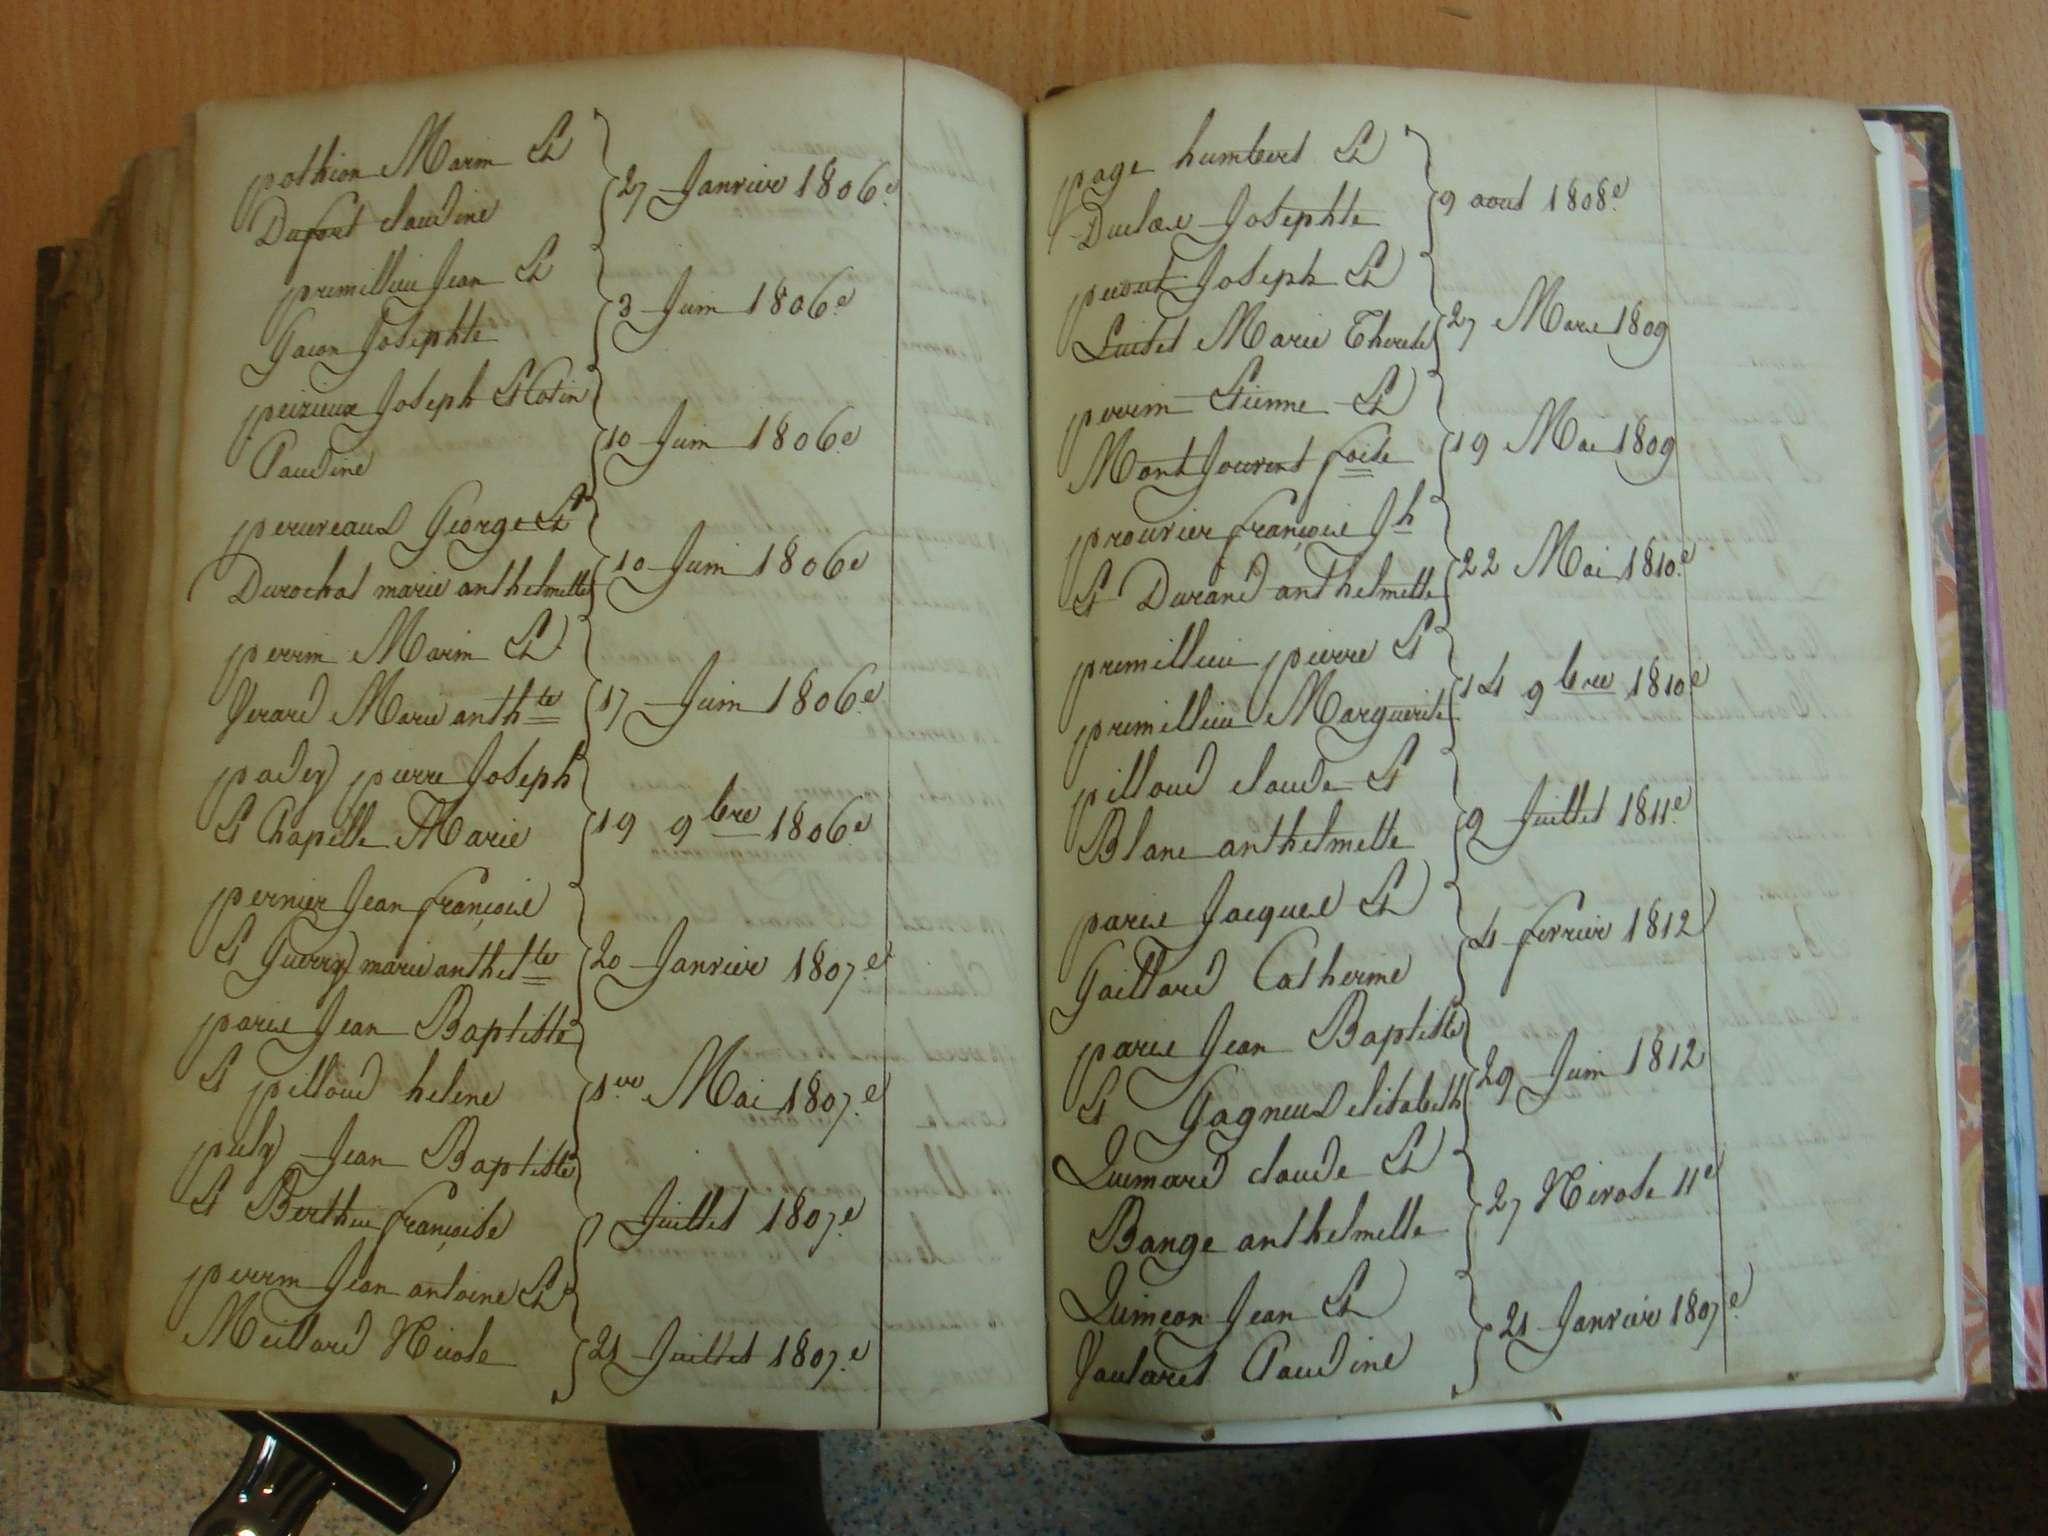 pothion Marin Et
Dufort claudine
27 Janvier 1806.e
premillieu Jean Et
Gacon Josephte
3 Juin 1806.e
peizieux Joseph Et Cotin
Claudine
10 Juin 1806.e
perureaud George Et
Durochat marie anthelmette
10 Juin 1806e
perrin Marin Et
Verard Marie anthte
17 Juin 1806.e
padey pierre Joseph
Et Chapelle Marie
19 9bre 1806.e
pernier Jean françois
Et Guerry marie anthelte
20 Janvier 1807.e
paris Jean Baptiste
Et pilloud helene
1er Mai 1807.e
pely Jean Baptiste
Et Berthet françoise
7 Juillet 1807.e
perrin Jean antoine Et
Meillard Nicole
21 Juillet 1807.e
page humbert Et
Duclos Josephte
9 aout 1808.e
Joseph Et
Luiset Marie Therese
27 Mars 1809
perrin Etienne Et
Montjouvent foise
19 Mai 1809
prouvier françois Jh
Et Durand anthelmette
22 Mai 1810.e
premillieu pierre Et
premillieu Marguerite
14 9bre 1810.e
pilloud claude Et
Blanc anthelmette
9 Juillet 1811.e
paris Jacques Et
Gaillard Catherine
4 fevrier 1812
paris Jean Baptiste
Et Gagneud elisabeth
29 Juin 1812
Quinard claude Et
Bange anthelmette
27 Nivose 11e
Quinçon Jean Et
Vautaret Claudine
21 Janvier 1807.e